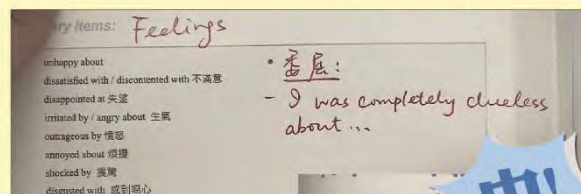 ry Items: Feelings
unhappy about
dissatisfied with / discontented with 不滿意
disappointed at 失望
irritated by / angry about 生氣
outrageous by 憤怒
annoyed about 煩擾
shocked by 震驚
disgusted with 感到噁心
• 委屈:
- I was completely clueless
about ...